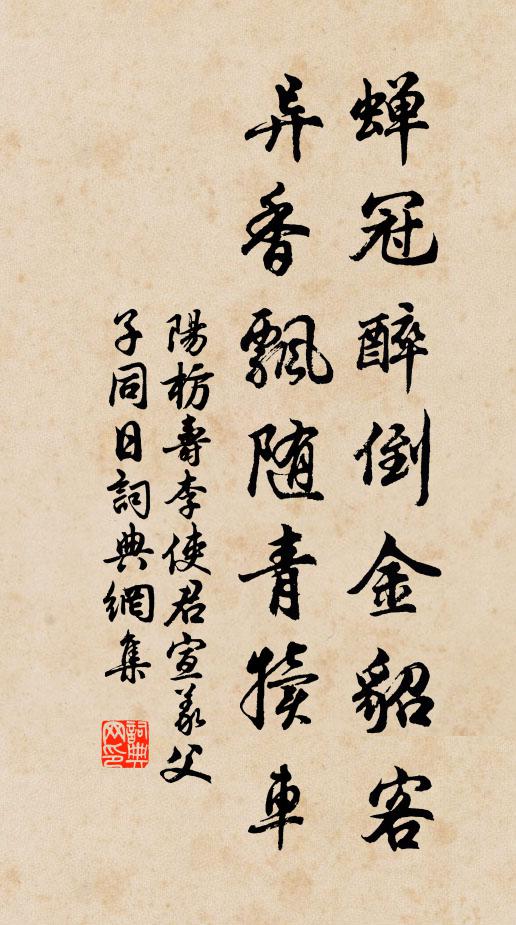 蝉冠醉倒金貂客
异香飄随青犢車
陽枋壽李使君宣義父
子同日詞典網集
詞典
网印